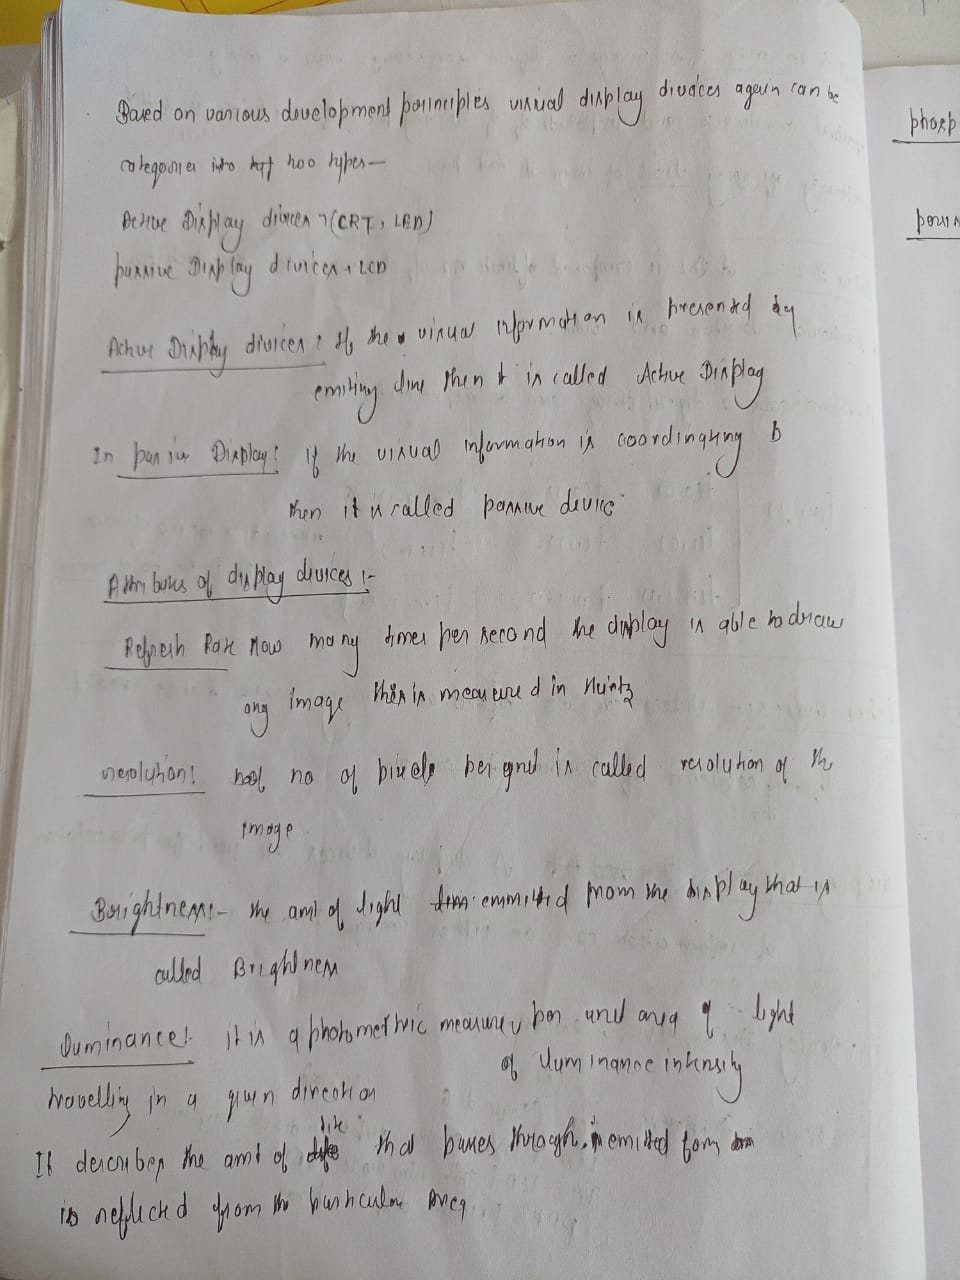 Based on various development principles visual display divices again can be
categories into two types—
Active Display divices → (CRT, LED)
passive Display divices → LCD
Active Display divices : If the visual information is presented by
emiting line then it is called Active Display
In passive Display: if the visual information is coordingting b
then it is called passive device
Attributes of display devices :-
Refresh Rate How many times per second the display is able to draw
any image this is measured in Huntz
resolution: no of pixels per grid is called resolution of the
image
Brightness:- the amt of light emmitted from the display that is
called Brightness
luminance:- it is a photometric measure per unit area of light
of lluminance intensity
travelling in a given direction
It describes the amt of like that passes through, is emitted form
is reflected from the particular area.
phosp